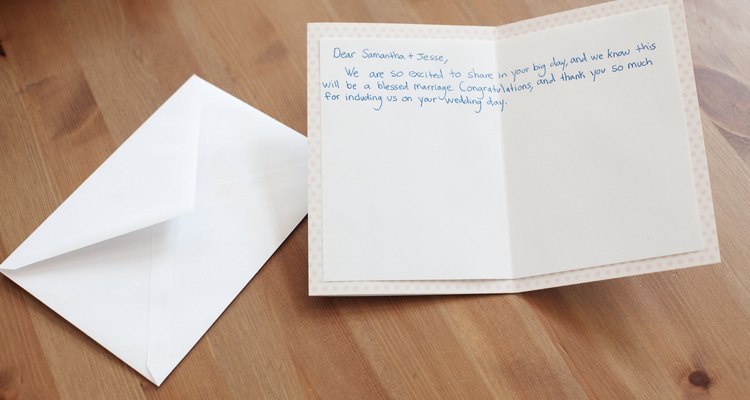 Dear Samantha + Jesse,
We are so excited to share in your big day, and we know this
will be a blessed marriage. Congratulations, and thank you so much
for including us on your wedding day.